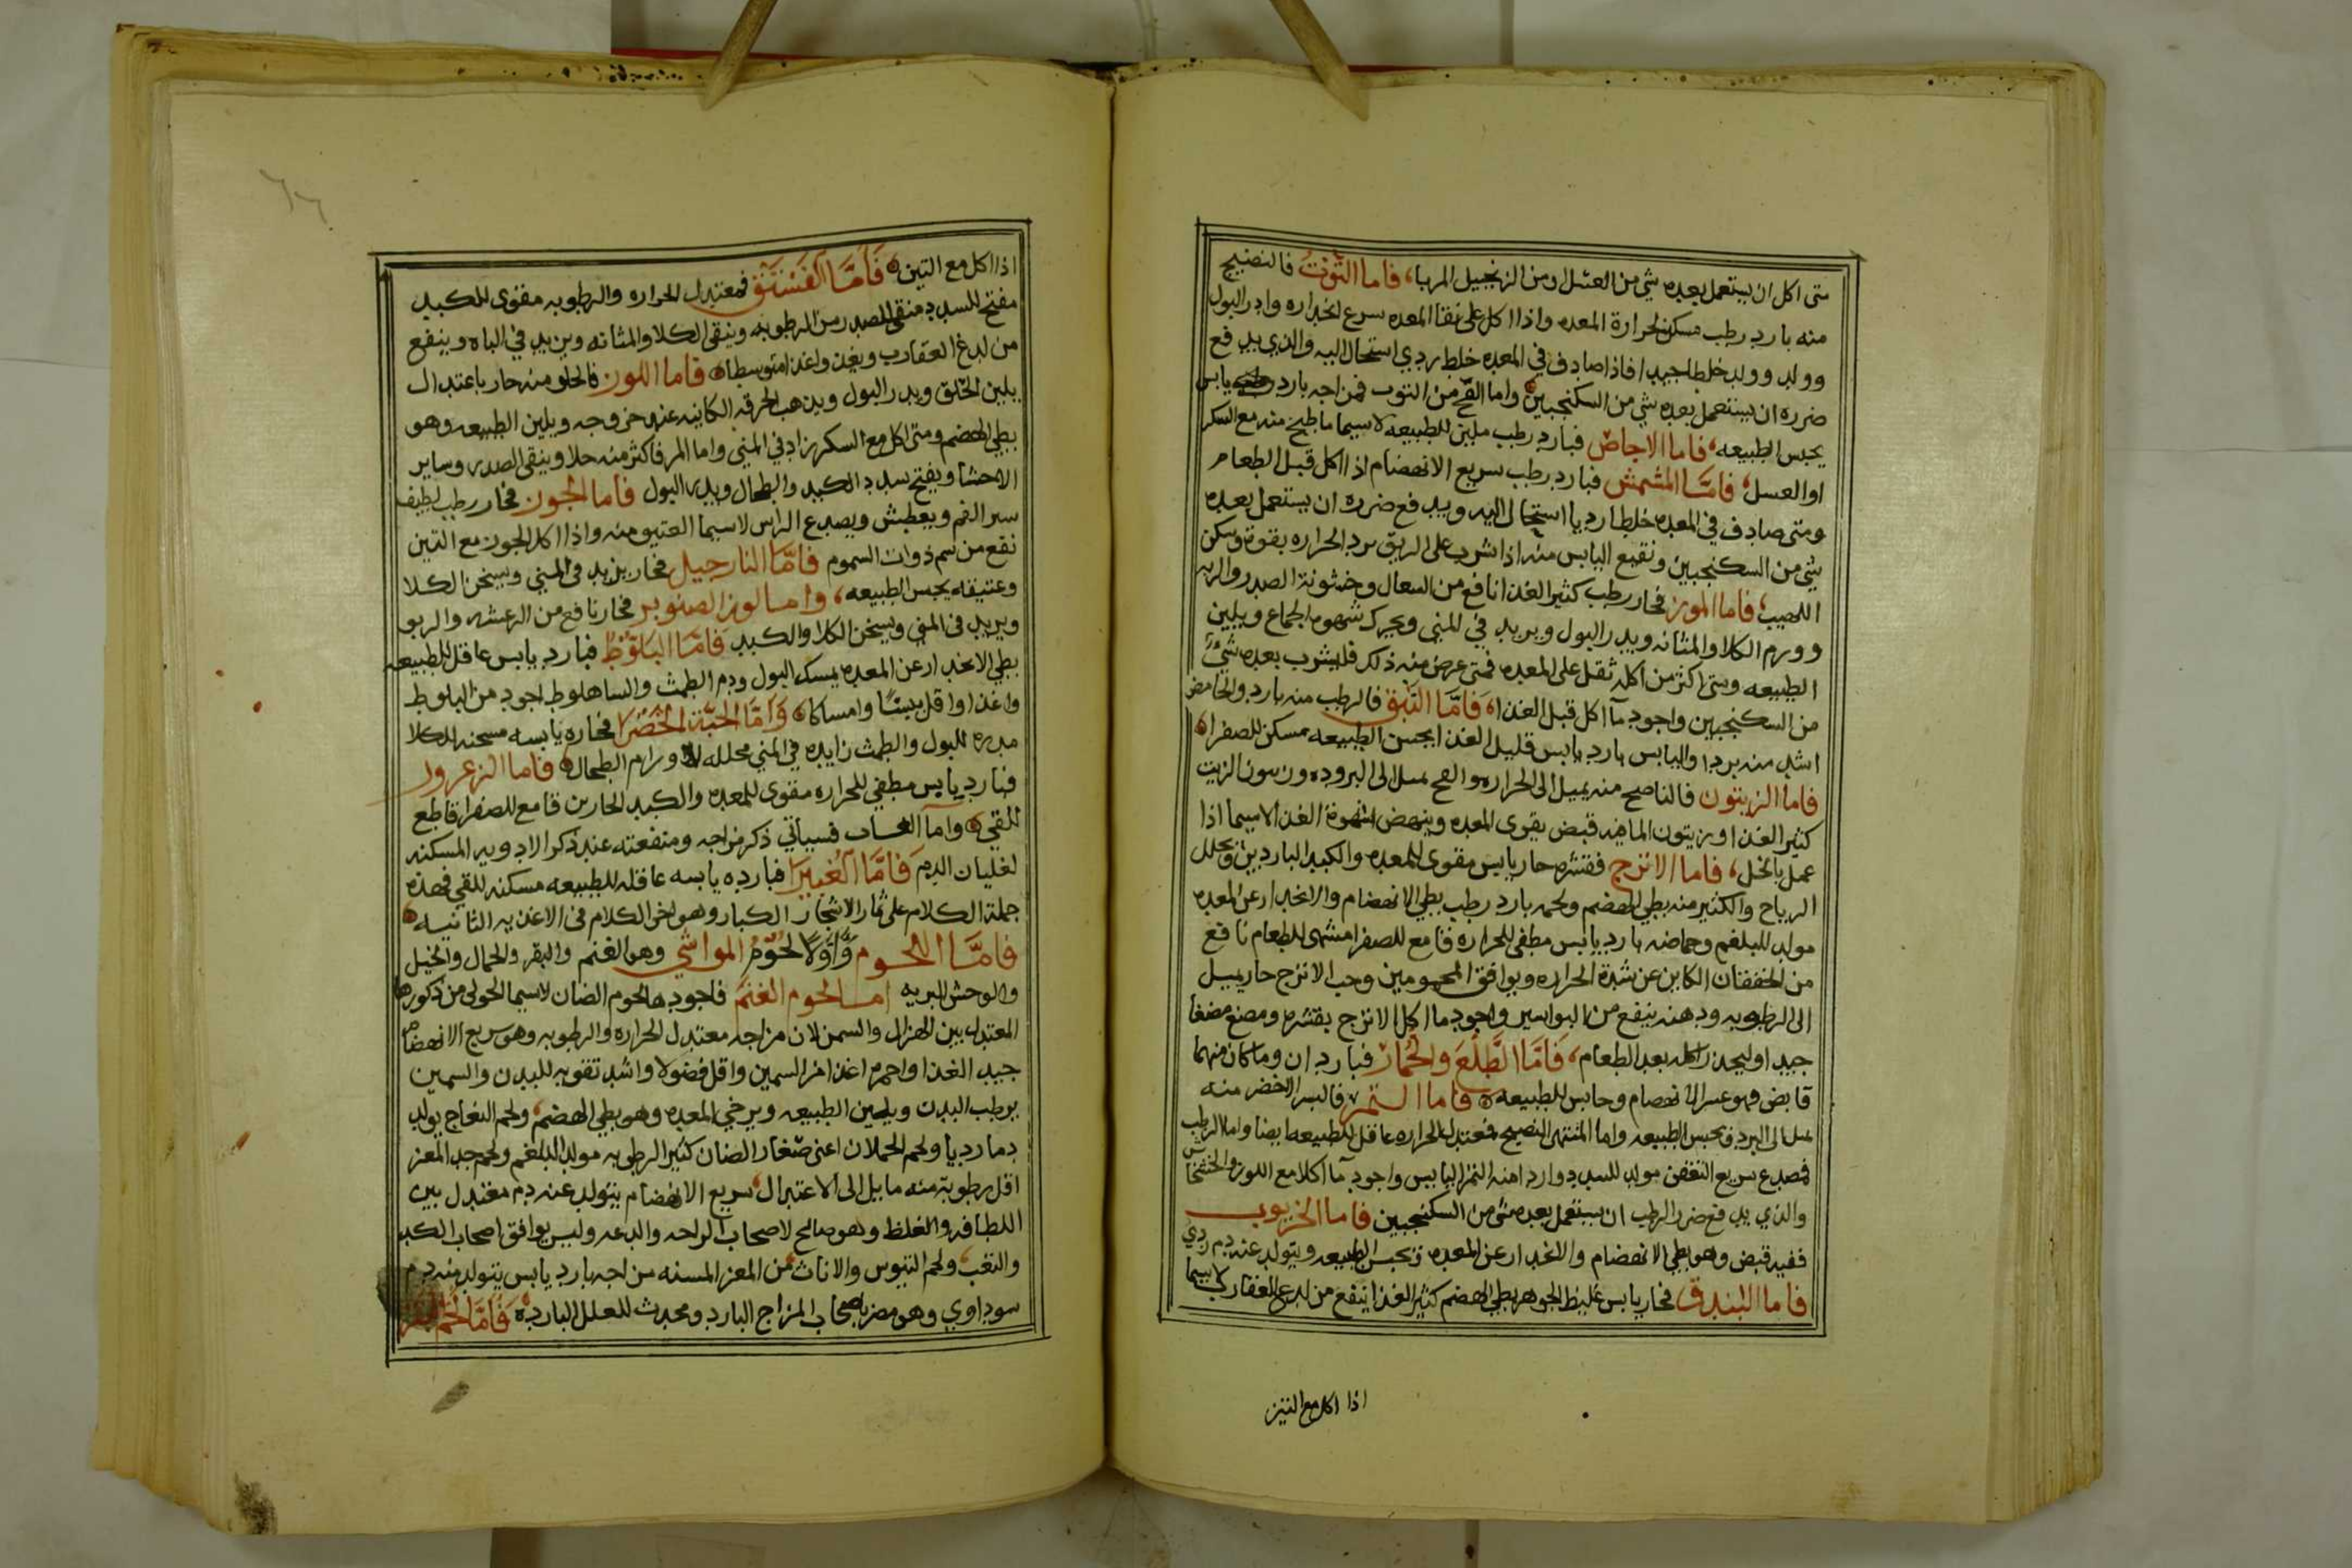 متى اكل ان يستعمل بعده شي من العسل ومن الزنجبيل المربا، فاما التوت فالنضيج
منه بارد رطب مسكن لحرارة المعده واذا اكل على نقا المعده سرع انحداره وادر البول
وولد وولد خلطا جيدا فاذا صادف في المعده خلط ردي استحال اليه والذي يدفع
ضرره ان يستعمل بعده شي من السكنجبين واما الفج من التوت فمزاجه بارد يابس
يحبس الطبيعه، فاما الاجاص فبارد رطب ملين للطبيعه لاسيما ما طبخ منه مع السكر
او العسل، فامّا المشمش فبارد رطب سريع الانهضام اذا اكل قبل الطعام
ومتى صادف في المعده خلطا رديا استحال اليه ويدفع ضرره ان يستعمل بعده
شي من السكنجبين ونقيع اليابس منه اذا شرب على الريق برد الحراره بقوة وسكن
اللهيب، فاما الموز فحار رطب كثير الغذا نافع من السعال وخشونة الصدر والريه
وورم الكلا والمثانه ويدر البول ويزيد في المني ويحرك شهوه الجماع ويلين
الطبيعه ومتى اكثر من اكله ثقل على المعده فمتى عرض منه ذلك فليشرب بعده شيء
من السكنجبين واجود ما اكل قبل الغذا، فَامَّا النبق فالرطب منه بارد والحامض
اشد منه بردا واليابس بارد يابس قليل الغذا يحبس الطبيعه مسكن للصفرا
فاما الزيتون فالناضج منه يميل الى الحراره والفج يميل الى البروده وزيتون الزيت
كثير الغذا وزيتون الما فيه قبض يقوى المعده وينهض شهوة الغذا لاسيما اذا
عمل بالخل، فاما الاترج فقشره حار يابس مقوى للمعده والكبد الباردين ويحلل
الرياح والكثير منه بطي الهضم ولحمه بارد رطب بطي الانهضام والانحدار عن المعده
مولد للبلغم وحماضه بارد يابس مطفى للحراره قامع للصفرا مشهى للطعام نافع
من الخفقان الكاين عن شدة الحراره ويوافق المحمومين وحب الاترج حار يميل
الى الرطوبه ودهنه ينفع من البواسير واجود ما اكل الاترج بقشره ومضغ مضغا
جيدا وليحذر اكله بعد الطعام، فَامَّا الطَّلْعَ والجُمار فباردان وما كان منهما
قابض فهو عسر الانهضام وحابس للطبيعه فاما التمر فالبسر الاخضر منه
يميل الى البرد ويحبس الطبيعه واما المنتهى النضيج فمعتدل الحراره عاقل للطبيعه ايضا واما الرطب
فمصدع سريع التعفن مولد للسدد واردا منه التمر اليابس واجود ما اكلا مع اللوز والخشخاش
والذي يدفع ضرر الرطب ان يستعمل بعده شي من السكنجبين فاما الخرنوب
ففيه قبض وهو بطي الانهضام والانحدار عن المعده وتحبس الطبيعه ويتولد عنه دم ردي
فاما البندق فحار يابس غليظ الجوهر بطي الهضم كثير الغذا ينفع من لدغ العقارب لاسيما
اذا اكل مع التين
اذا اكل مع التين فَامَّا الفستق فمعتدل الحراره والرطوبه مقوى للكبد
مفتح للسدد منقى للصدر من الرطوبه وينقى الكلا والمثانه ويزيد في الباه وينفع
من لدغ العقارب ويغذوا غذا متوسطا فاما اللوز فالحلو منه حار باعتدال
يلين الحلق ويدر البول ويذهب الحرقه الكاينه عند خروجه ويلين الطبيعه وهو
بطي الهضم ومتى اكل مع السكر زاد في المني واما المر فاكثر منه حلا وينقى الصدر وساير
الاحشا ويفتح سدد الكبد والطحال ويدر البول فاما الجوز فحار رطب لطيف
الفم ويعطش ويصدع الراس لاسيما العتيق منه واذا اكل الجوز مع التين
نفع من سم ذوات السموم فامّا النارجيل فحار يزيد فى المني ويسخن الكلا
وعتيقه يحبس الطبيعه، واما لوز الصنوبر فحار نافع من الرعشه والربو
ويزيد فى المني ويسخن الكلا والكبد فَامَّا البَلّوُطُ فبارد يابس عاقل للطبيعه
بطي الانحدار عن المعده يمسك البول ودم الطمث والساهلوط اجود من البلوط
واغذا واقل يبسًا وامساكا وَامّا الحبّة الخَضْرا فحاره يابسه مسخنه للكلا
مدره للبول والطمث زايده في المني محلله لاورام الطحال فاما الزعرور
فبارد يابس مطفي للحراره مقوى للمعده والكبد الحارين قامع للصفرا قاطع
للقي واما العناب فسياتي ذكر مزاجه ومنفعته عند ذكر الادويه المسكنه
لغليان الدم فَامَّا الغُبَيْرا فبارده يابسه عاقله للطبيعه مسكنه للقي فهذه
جملة الكلام على ثمار الاشجار الكبار وهو اخر الكلام فى الاغذيه الثانيه
فامَّا اللحوم وَّاوَلاً لحُوُمُ المواشي وهو الغنم والبقر والجمال والخيل
والوحش البريه اما لحوم الغنم فاجودها لحوم الضان لاسيما الحولى من ذكورها
المعتدل بين الهزال والسمن لان مزاجه معتدل الحراره والرطوبه وهو سريع الانهضام
جيد الغذا واحمره اغذا من السمين واقل فضولا واشد تقويه للبدن والسمين
يرطب البدن ويلين الطبيعه ويرخي المعده وهو بطي الهضم، ولحم النعاج يولد
دما رديا ولحم الحملان اعنى صغار الضان كثير الرطوبه مولد للبلغم ولحم جدا المعز
اقل رطوبة منه مايل الى الاعتدال سريع الانهضام يتولد عنه دم معتدل بين
اللطافه والغلظ وهو صالح لاصحاب الراحه والدعه وليس يوافق اصحاب الكد
والتعب، ولحم التيوس والاناث من المعز المسنه مزاجه بارد يابس يتولد منه دم
سوداوي وهو مضر باصحاب المزاج البارد ومحدث للعلل البارده فَامَّا لَحْم البقر